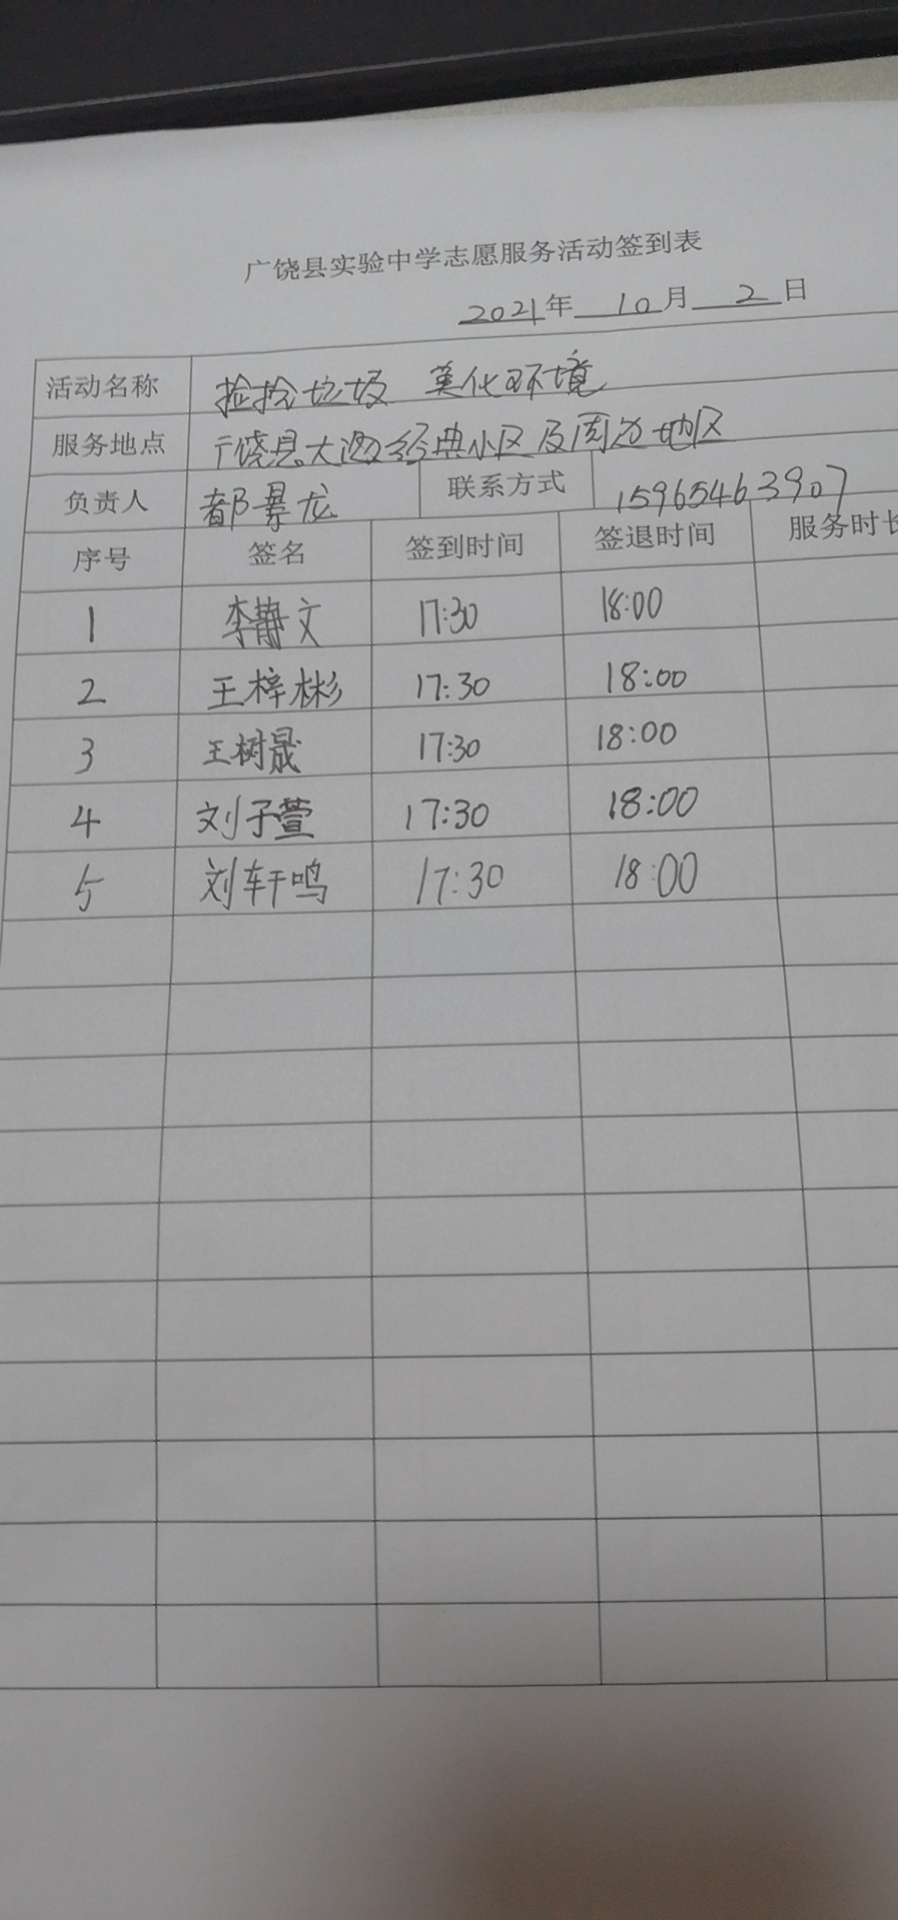 广饶县实验中学志愿服务活动签到表
2021年 10月 2日
活动名称 捡拾垃圾 美化环境
服务地点 广饶县大海经典小区及周边地区
负责人 都景龙 联系方式 15965463907
序号 签名 签到时间 签退时间 服务时长
1 李静文 17:30 18:00
2 王梓彬 17:30 18:00
3 王树晟 17:30 18:00
4 刘子萱 17:30 18:00
5 刘轩鸣 17:30 18:00